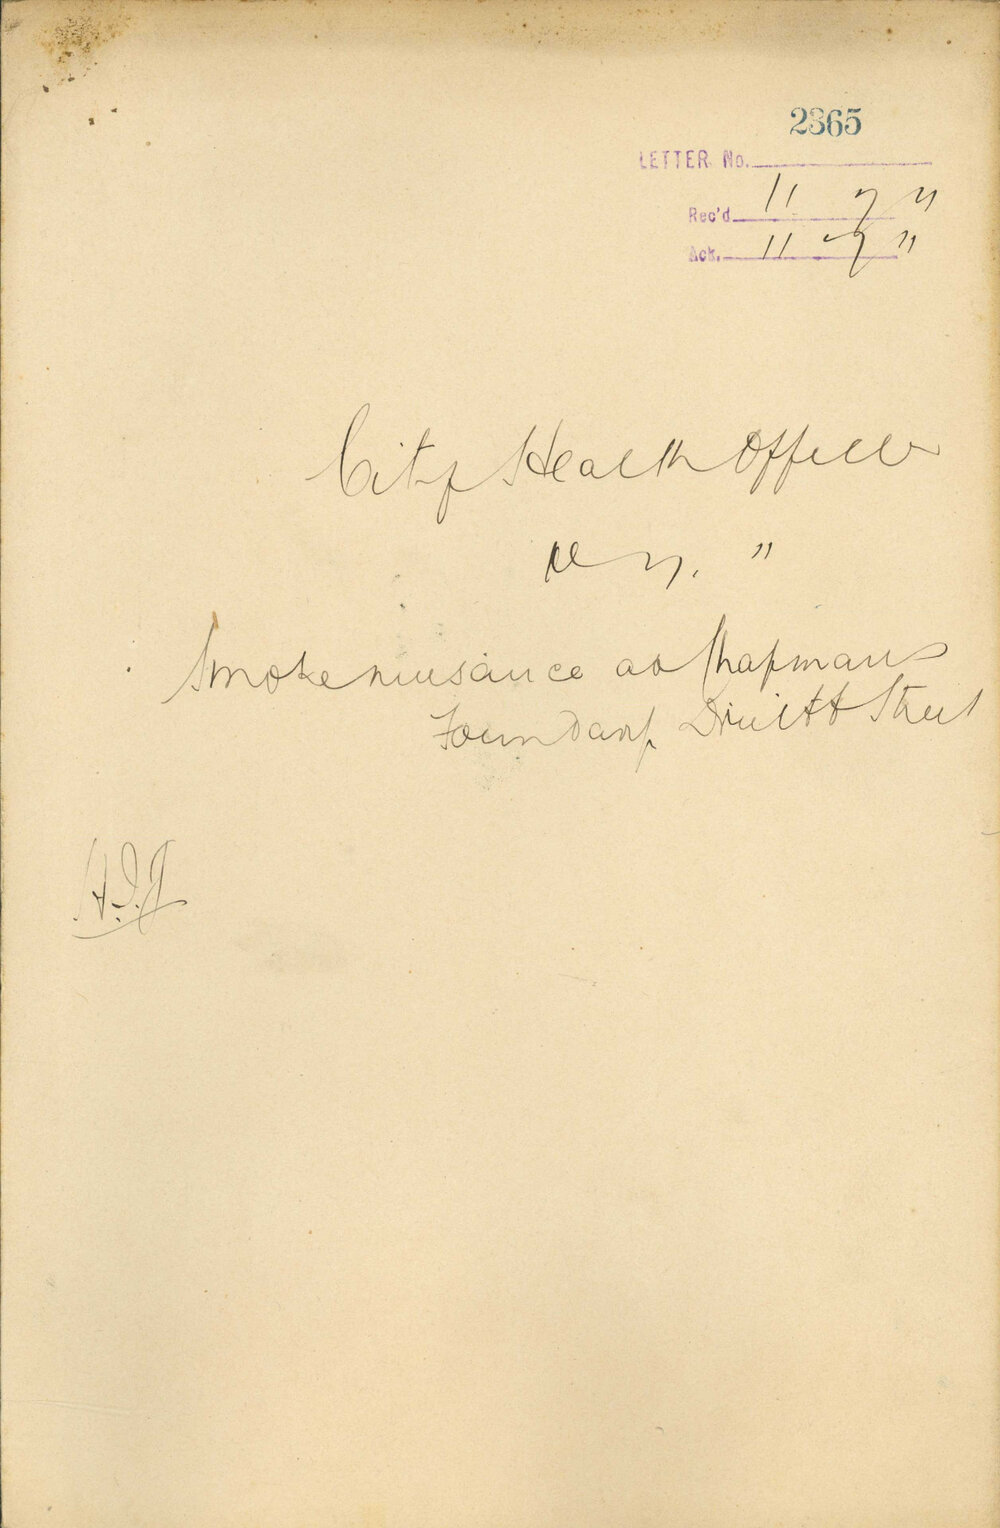 2365
LETTER No.
Rec'd 11 7 11
Ack. 11 7 11
City Health Officer
7. 11
Smoke nuisance at Chapmans
Foundary, Druitt Street